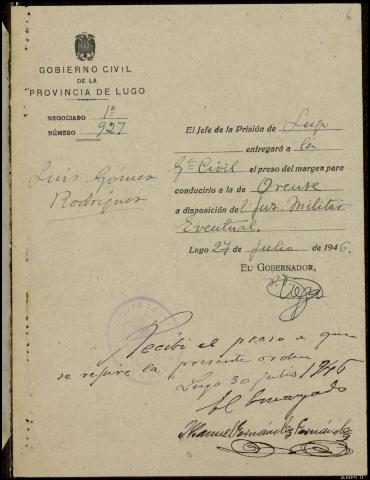 6
GOBIERNO CIVIL
DE LA
PROVINCIA DE LUGO
NEGOCIADO 1º
NÚMERO 927
Luis Gómez
Rodríguez
El Jefe de la Prisión de Lugo
entregará a la
Gª Civil el preso del margen para
conducirlo a la de Orense
a disposición del Juz. Militar
Eventual.
Lugo 27 de Julio de 1946.
EL GOBERNADOR,
Recibí el preso a que
se refiere la presente orden
Lugo 30 julio 1946
El Encargado
Manuel Fernández Fernández